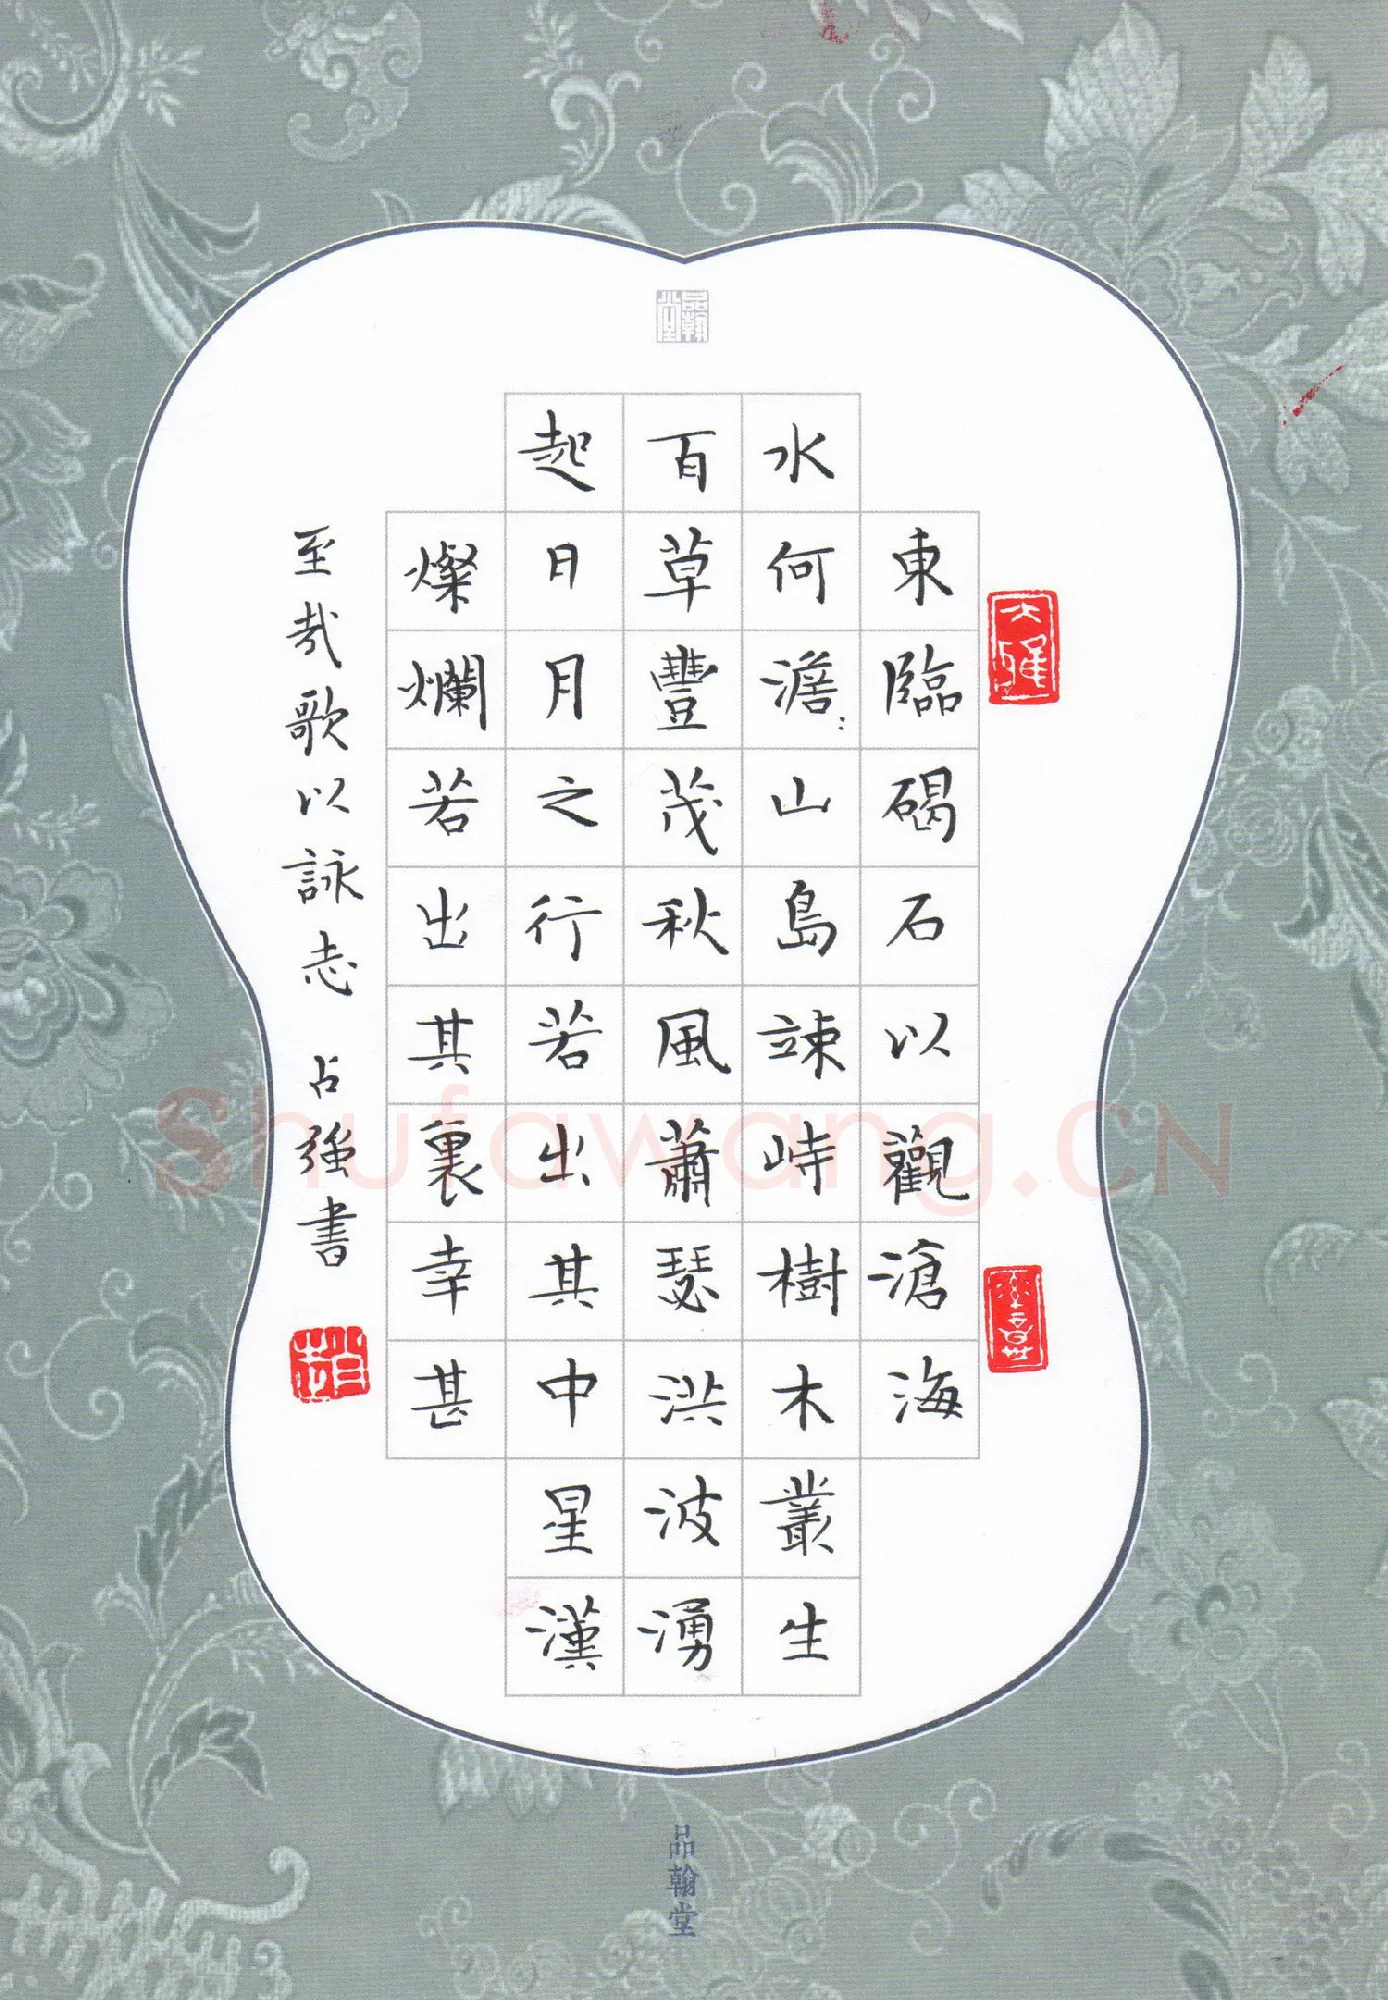 東臨碣石以觀滄海
水何澹：山島竦峙樹木叢生
百草豐茂秋風蕭瑟洪波湧
起日月之行若出其中星漢
燦爛若出其裏幸甚
至哉歌以詠志 占強書
大雅
品翰堂
品翰堂
Shufawang.CN